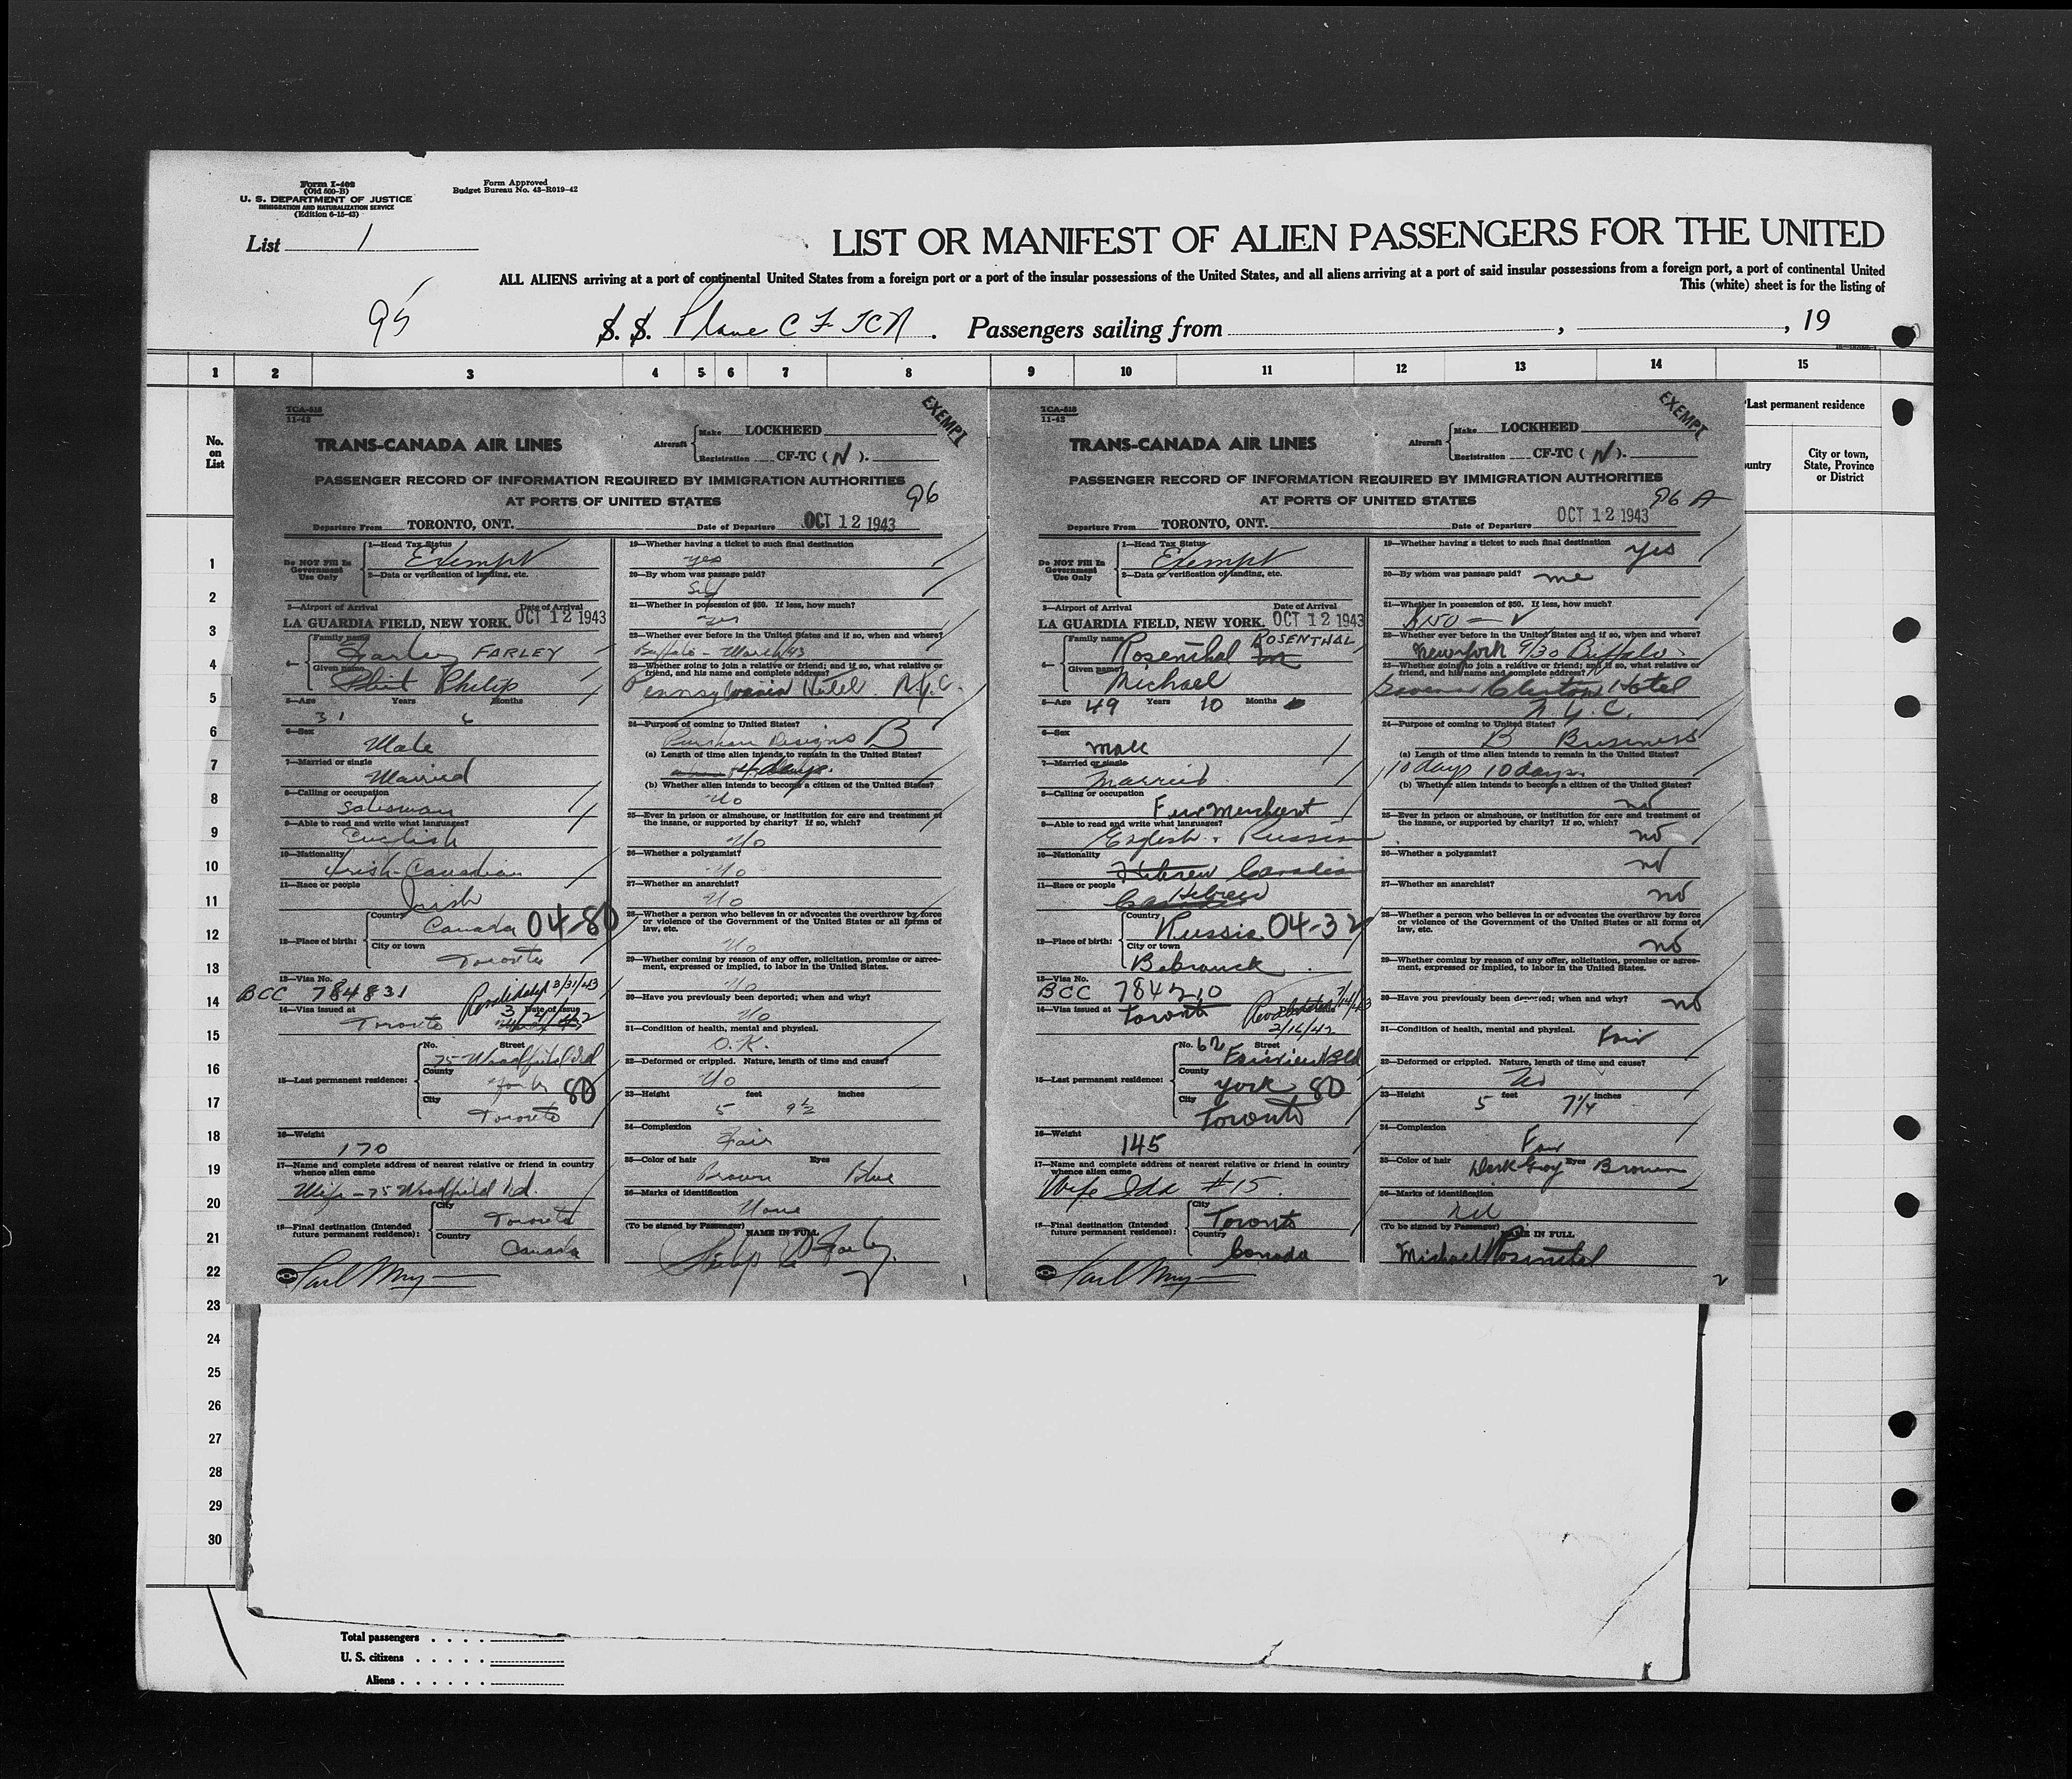 Form I-402
(Old 500-B)
U. S. DEPARTMENT OF JUSTICE
IMMIGRATION AND NATURALIZATION SERVICE
(Edition 6-15-43)
Form Approved
Budget Bureau No. 43-R019-42
List 1
LIST OR MANIFEST OF ALIEN PASSENGERS FOR THE UNITED
ALL ALIENS arriving at a port of continental United States from a foreign port or a port of the insular possessions of the United States, and all aliens arriving at a port of said insular possessions from a foreign port, a port of continental United
This (white) sheet is for the listing of
95
S. S. Plane C F TCN. Passengers sailing from , , 19
1 2 3 4 5 6 7 8 9 10 11 12 13 14 15
No.
on
List
Last permanent residence
City or town,
State, Province
or District
1
2
3
4
5
6
7
8
9
10
11
12
13
14
15
16
17
18
19
20
21
22
23
24
25
26
27
28
29
30
TCA-518
11-42
EXEMPT
TRANS-CANADA AIR LINES
Aircraft
Make LOCKHEED
Registration CF-TC ( N ).
PASSENGER RECORD OF INFORMATION REQUIRED BY IMMIGRATION AUTHORITIES
AT PORTS OF UNITED STATES
96
Departure From TORONTO, ONT. Date of Departure OCT 12 1943
Do NOT Fill In
Government
Use Only
1—Head Tax Status
Exempt
2—Data or verification of landing, etc.
3—Airport of Arrival Date of Arrival
LA GUARDIA FIELD, NEW YORK. OCT 12 1943
4— Family name
Farley FARLEY
Given name
Philip
5—Age Years Months
31 6
6—Sex
Male
7—Married or single
Married
8—Calling or occupation
Salesman
9—Able to read and write what languages?
English
10—Nationality
Irish-Canadian
11—Race or people
Irish
12—Place of birth:
Country
Canada 04-80
City or town
Toronto
13—Visa No.
BCC 784831 3/31/43
14—Visa issued at Date of Issue
Toronto
15—Last permanent residence:
No. Street
75 Woodfield Rd
County
York 80
City
Toronto
16—Weight
170
17—Name and complete address of nearest relative or friend in country
whence alien came
Wife - 75 Woodfield Rd.
18—Final destination (Intended
future permanent residence):
City
Toronto
Country
Canada
19—Whether having a ticket to such final destination
yes
20—By whom was passage paid?
Self
21—Whether in possession of $50. If less, how much?
yes
22—Whether ever before in the United States and if so, when and where?
Buffalo - March/43
23—Whether going to join a relative or friend; and if so, what relative or
friend, and his name and complete address?
Pennsylvania Hotel N.Y.C.
24—Purpose of coming to United States?
Designs B
(a) Length of time alien intends to remain in the United States?
4 days.
(b) Whether alien intends to become a citizen of the United States?
No
25—Ever in prison or almshouse, or institution for care and treatment of
the insane, or supported by charity? If so, which?
No
26—Whether a polygamist?
No
27—Whether an anarchist?
No
28—Whether a person who believes in or advocates the overthrow by force
or violence of the Government of the United States or all forms of
law, etc.
No
29—Whether coming by reason of any offer, solicitation, promise or agree-
ment, expressed or implied, to labor in the United States.
No
30—Have you previously been deported; when and why?
No
31—Condition of health, mental and physical.
O.K.
32—Deformed or crippled. Nature, length of time and cause?
No
33—Height feet inches
5 9½
34—Complexion
Fair
35—Color of hair Eyes
Brown Blue
36—Marks of identification
None
(To be signed by Passenger) NAME IN FULL
1
TCA-518
11-42
EXEMPT
TRANS-CANADA AIR LINES
Aircraft
Make LOCKHEED
Registration CF-TC ( N ).
PASSENGER RECORD OF INFORMATION REQUIRED BY IMMIGRATION AUTHORITIES
AT PORTS OF UNITED STATES
96 A
Departure From TORONTO, ONT. Date of Departure OCT 12 1943
Do NOT Fill In
Government
Use Only
1—Head Tax Status
Exempt
2—Data or verification of landing, etc.
3—Airport of Arrival Date of Arrival
LA GUARDIA FIELD, NEW YORK. OCT 12 1943
4— Family name
Rosenthal ROSENTHAL
Given name
Michael
5—Age 49 Years 10 Months
6—Sex
male
7—Married or single
Married
8—Calling or occupation
Fur Merchant
9—Able to read and write what languages?
English. Russian
10—Nationality
Hebrew Canadian
11—Race or people
Hebrew
12—Place of birth:
Country
Russia 04-32
City or town
Bobrouck
13—Visa No.
BCC 784210
14—Visa issued at
Toronto
2/16/42
15—Last permanent residence:
No. 62 Street
County
York 80
City
Toronto
16—Weight
145
17—Name and complete address of nearest relative or friend in country
whence alien came
Wife Ida #15
18—Final destination (Intended
future permanent residence):
City
Toronto
Country
Canada
19—Whether having a ticket to such final destination
yes
20—By whom was passage paid? me
21—Whether in possession of $50. If less, how much?
$150 —
22—Whether ever before in the United States and if so, when and where?
New York 9/30 Buffalo
23—Whether going to join a relative or friend; and if so, what relative or
friend, and his name and complete address?
Clinton Hotel
N.Y.C.
24—Purpose of coming to United States?
B Business
(a) Length of time alien intends to remain in the United States?
10 days 10 days.
(b) Whether alien intends to become a citizen of the United States?
no
25—Ever in prison or almshouse, or institution for care and treatment of
the insane, or supported by charity? If so, which?
no
26—Whether a polygamist?
no
27—Whether an anarchist?
no
28—Whether a person who believes in or advocates the overthrow by force
or violence of the Government of the United States or all forms of
law, etc.
no
29—Whether coming by reason of any offer, solicitation, promise or agree-
ment, expressed or implied, to labor in the United States.
30—Have you previously been deported; when and why? no
31—Condition of health, mental and physical.
Fair
32—Deformed or crippled. Nature, length of time and cause?
No
33—Height feet inches
5 7¼
34—Complexion
Fair
35—Color of hair Eyes
Dark Gray Brown
36—Marks of identification
nil
(To be signed by Passenger) NAME IN FULL
Michael Rosenthal
2
Total passengers
U. S. citizens
Aliens